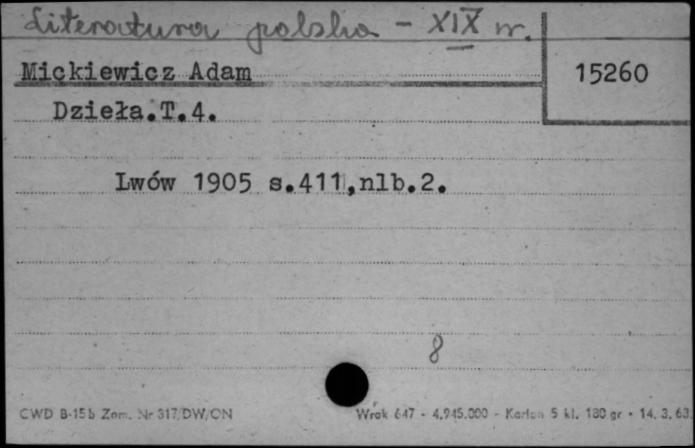 Literatura polska - XIX w.
Mickiewicz Adam
15260
Dzieła.T.4.
Lwów 1905 s.411,nlb.2.
8
CWD B-15b Zam. Nr 317/DW/CN
647 - 4.945.000 - Karton 5 kl. 180 gr - 14.3.63